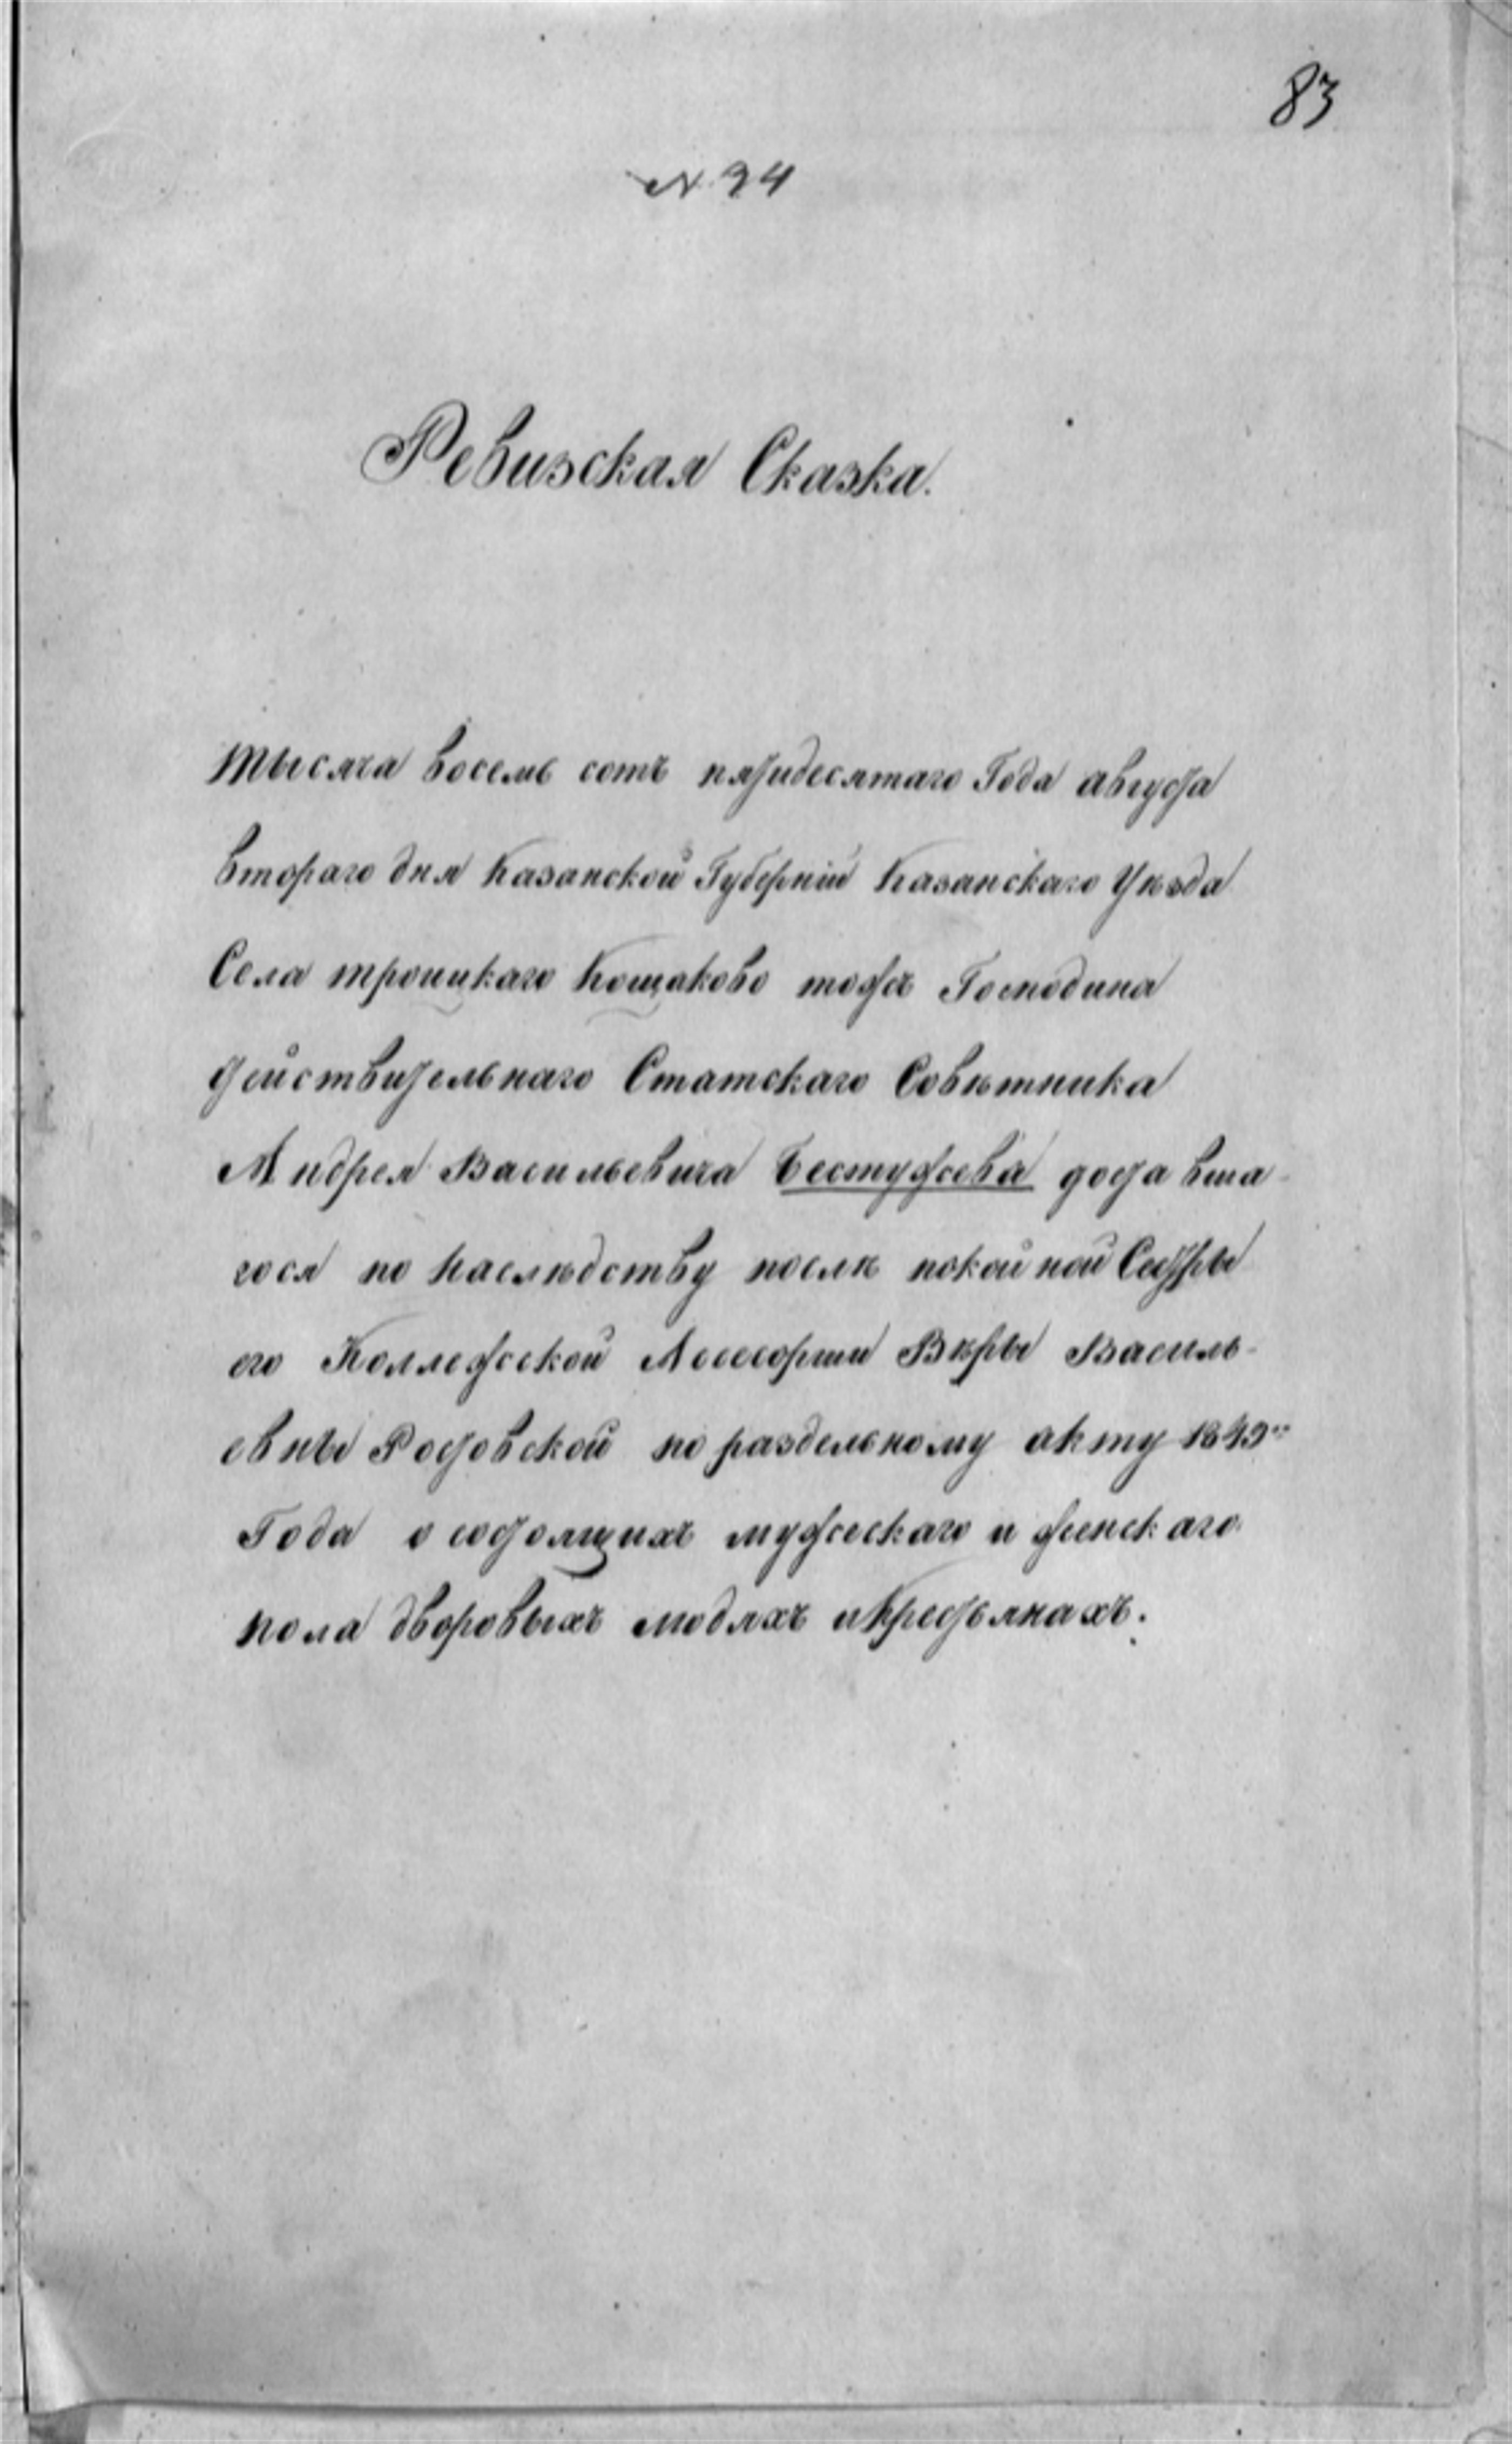 83
N. 94
Ревизская Сказка.
тысяча восемь сотъ пятидесятаго Года августа
втораго дня Казанской Губерніи Казанскаго Уѣзда
Села троицкаго Кощаково тожъ Господина
действительнаго Статскаго Совѣтника
Андрея Васильевича Бестужева доставша-
гося по наслѣдству послѣ покойной Сестры
его Коллежской Ассесорши Вѣры Василь-
евны Ростовской по раздельному акту 1849го
Года о состоящихъ мужескаго и женскаго
пола дворовыхъ людяхъ и Крестьянахъ.